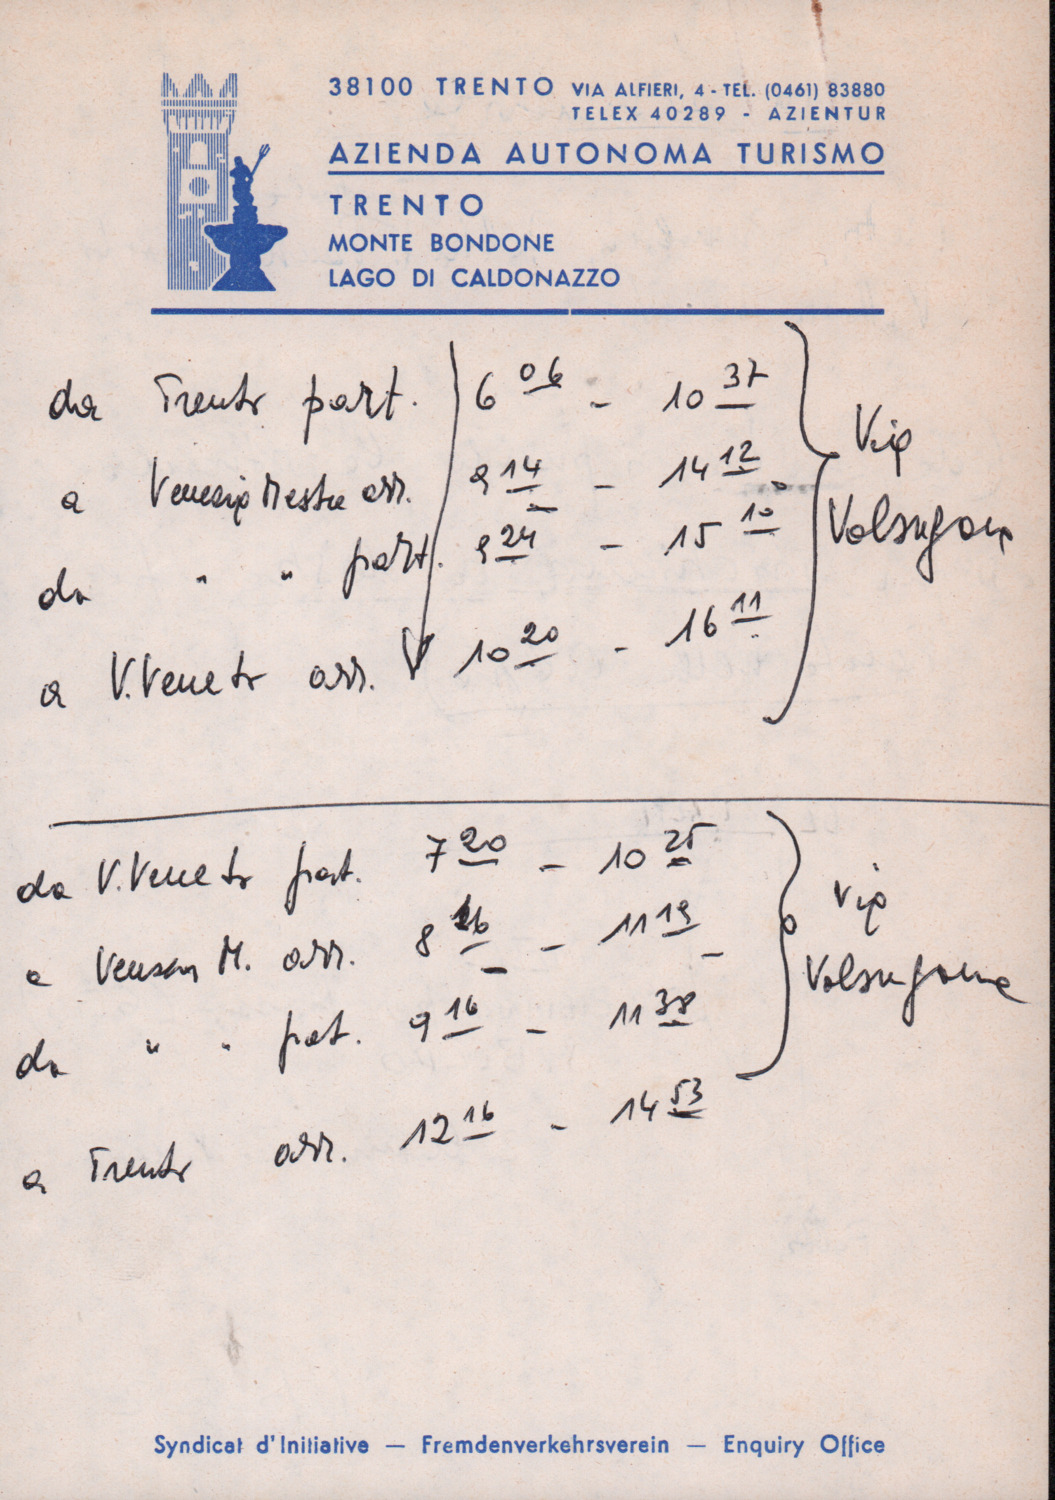 38100 TRENTO VIA ALFIERI, 4 - TEL. (0461) 83880
TELEX 40289 - AZIENTUR
AZIENDA AUTONOMA TURISMO
TRENTO
MONTE BONDONE
LAGO DI CALDONAZZO
da Trento part. 6 06 - 10 37
a Venezia Mestre arr. 9 14 - 14 12
Via
Valsugana
da " " part. 9 24 - 15 10
a V. Veneto arr. 10 20 - 16 11
da V. Veneto part. 7 20 - 10 25
a M. arr. 8 - 11 19
via
Valsugana
da " " part. 9 16 - 11 38
a Trento arr. 12 16 - 14 53
Syndicat d'Initiative — Fremdenverkehrsverein — Enquiry Office